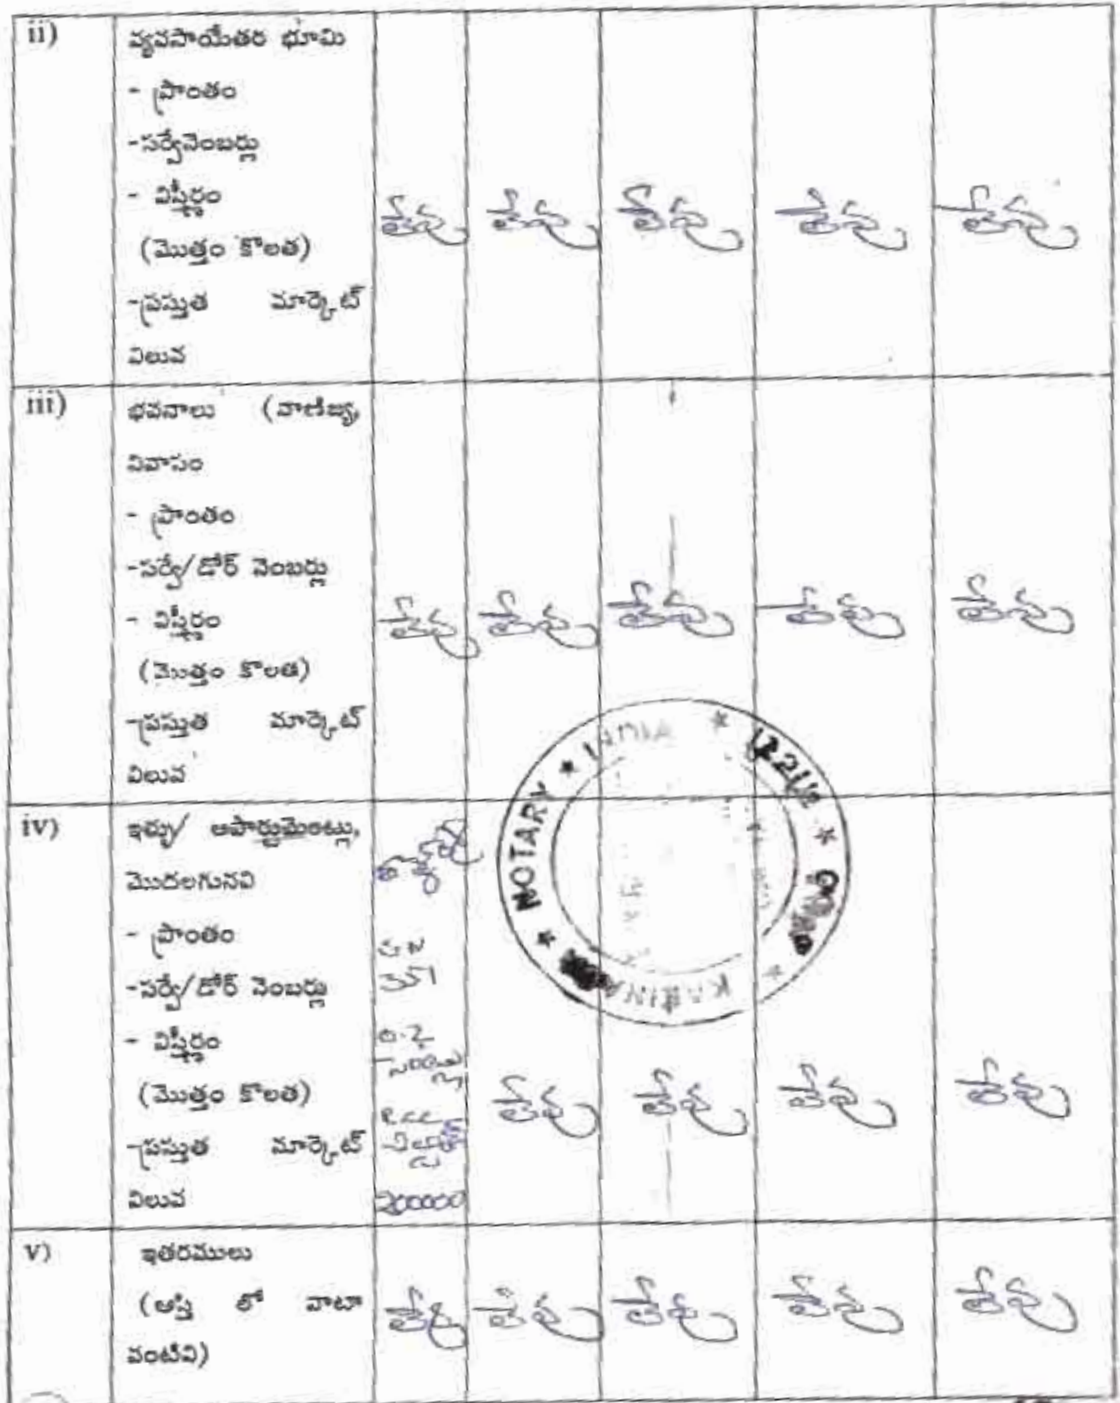 ii)
వ్యవసాయేతర భూమి
- ప్రాంతం
-సర్వేనెంబర్లు
- విస్తీర్ణం
(మొత్తం కొలత)
-ప్రస్తుత మార్కెట్
విలువ
లేవు లేవు లేవు లేవు లేవు
iii)
భవనాలు (వాణిజ్య,
నివాసం
- ప్రాంతం
-సర్వే/డోర్ నెంబర్లు
- విస్తీర్ణం
(మొత్తం కొలత)
-ప్రస్తుత మార్కెట్
విలువ
లేవు లేవు లేవు లేవు లేవు
iv)
ఇళ్ళు/ అపార్టుమెంట్లు,
మొదలగునవి
- ప్రాంతం
-సర్వే/డోర్ నెంబర్లు
- విస్తీర్ణం
(మొత్తం కొలత)
-ప్రస్తుత మార్కెట్
విలువ
0.2
సెంట్లు
200000
లేవు లేవు లేవు లేవు
NOTARY ★ INDIA ★
v)
ఇతరములు
(ఆస్తి లో వాటా
వంటివి)
లేవు లేవు లేవు లేవు లేవు